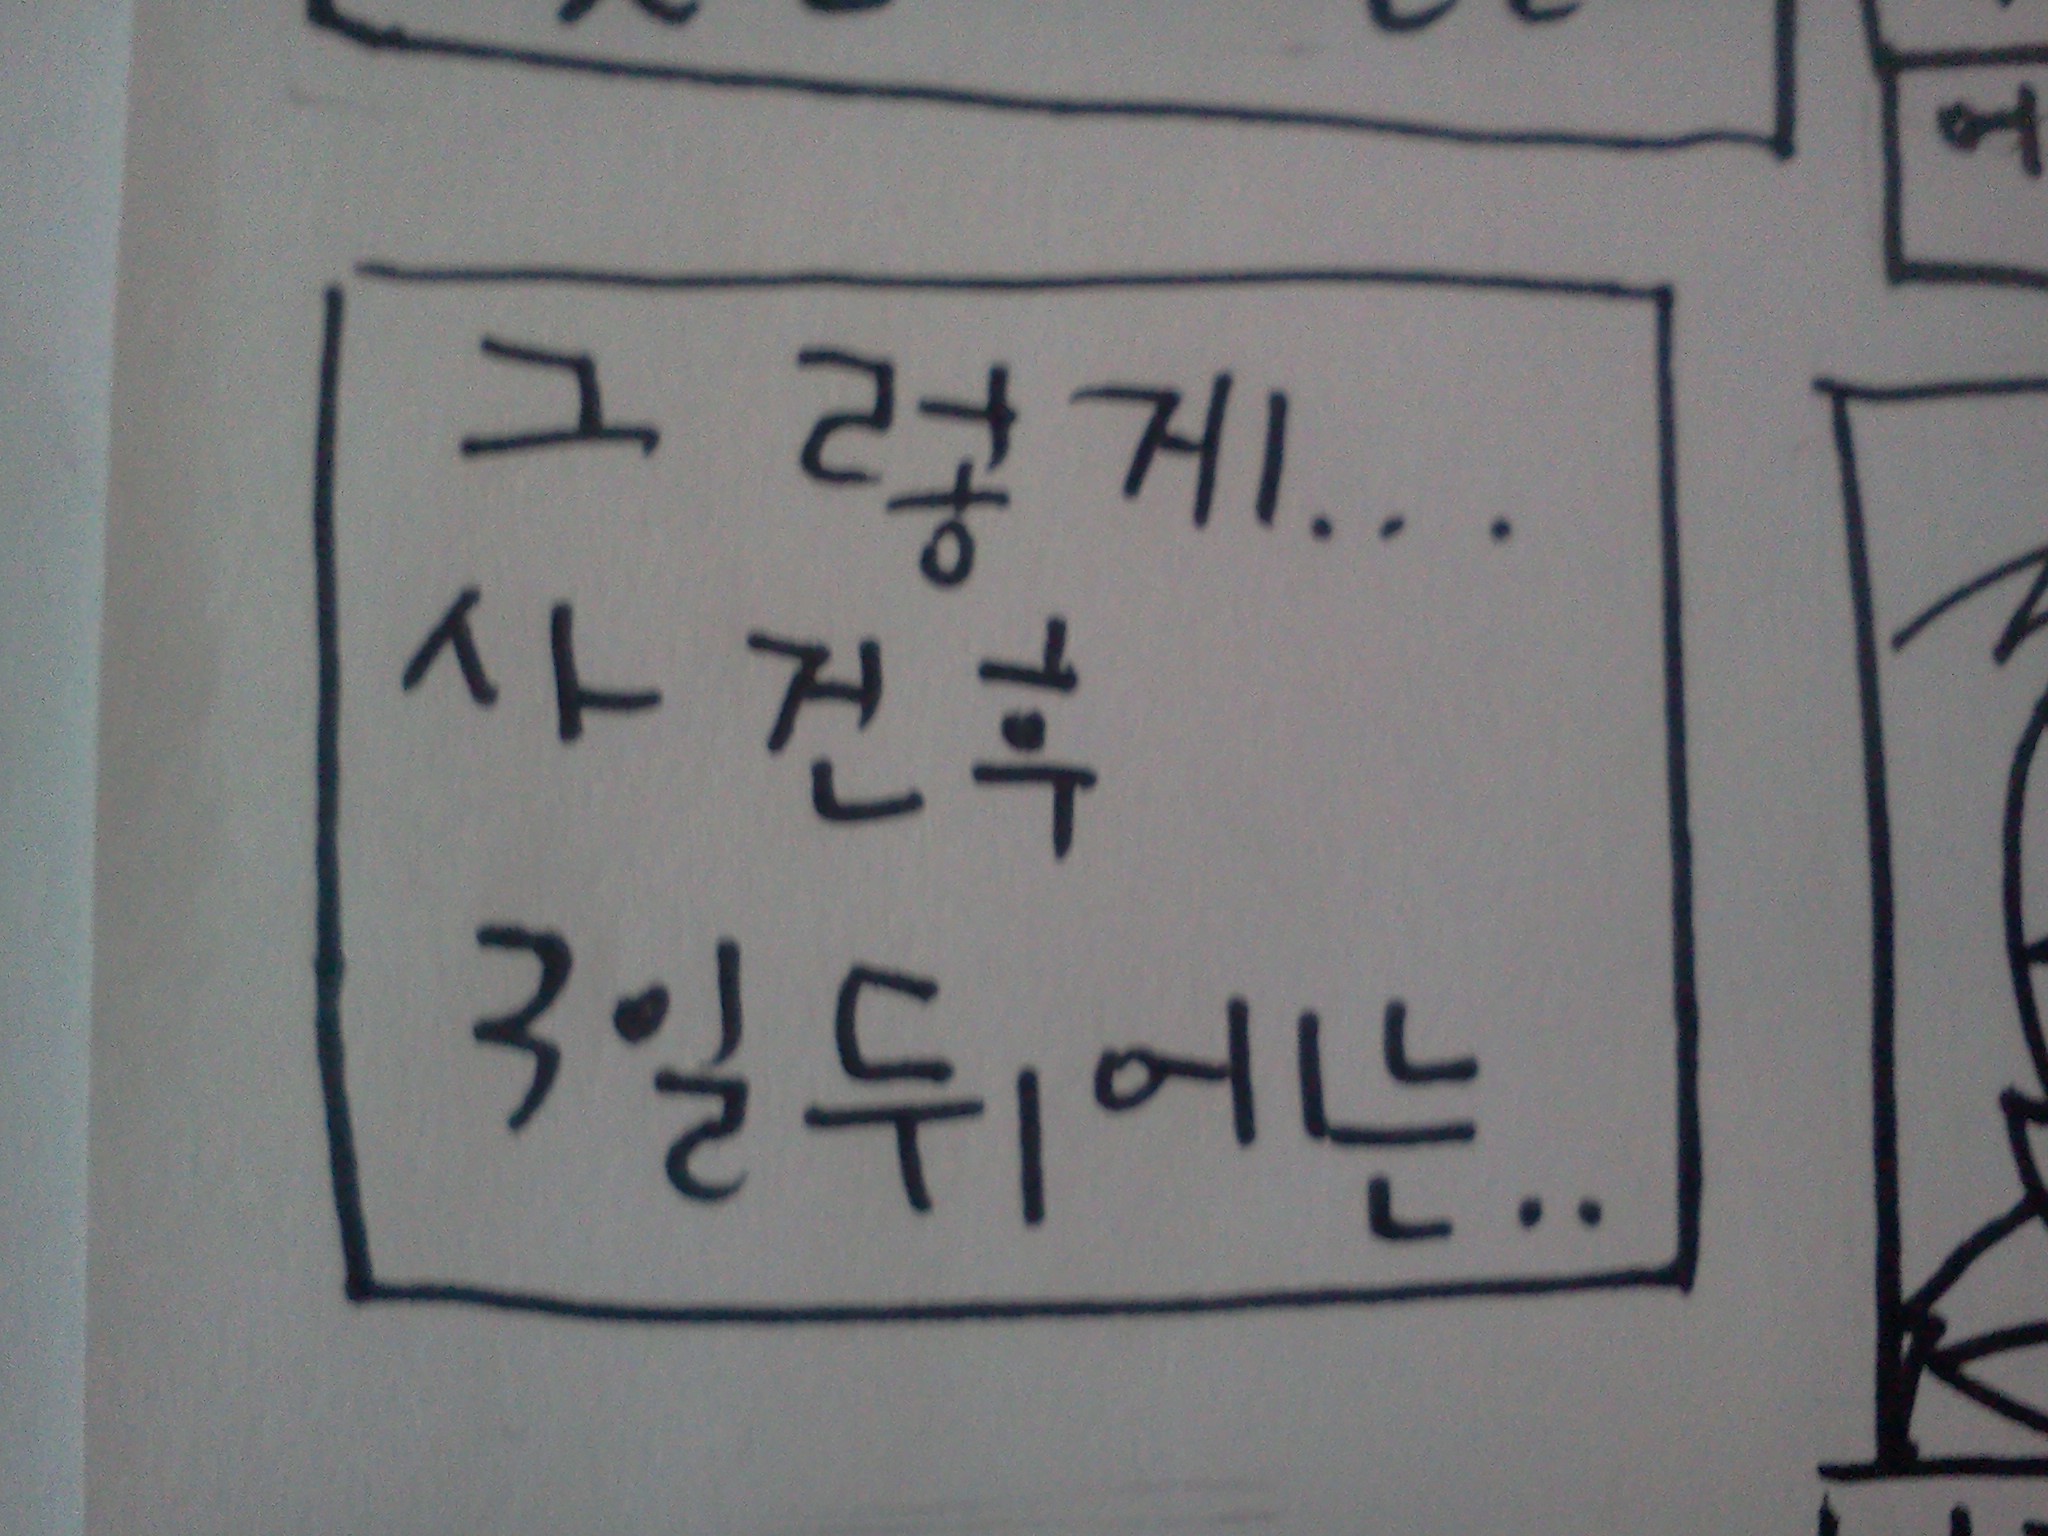 그렇게...
사건후
3일뒤에는..